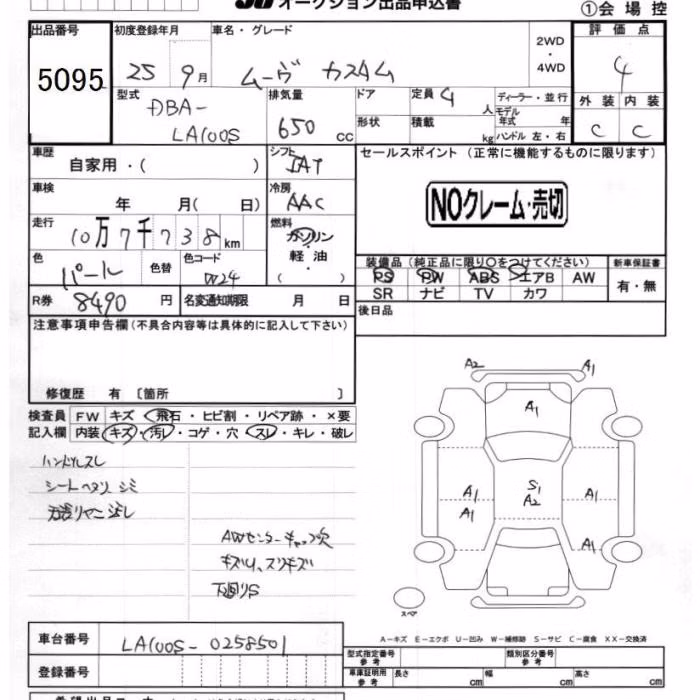 オークション出品申込書
①会場控
出品番号 初度登録年月 車名・グレード 評価点
5095 25 9月 ムーヴ カスタム 2WD・4WD 4
型式 排気量 ドア 定員 4人 ディーラー・並行 外装 内装
DBA-LA100S 650cc 形状 積載 kg モデル年式 年 ハンドル 左・右 C C
車歴 シフト セールスポイント (正常に機能するものに限ります)
自家用・( ) AT
車検 冷房
年 月( 日) AAC
NOクレーム・売切
走行 燃料
10万7千738km ガソリン・軽油・( )
色 色替 色コード
パール W24
装備品 (純正品に限り○をつけてください) 新車保証書
PS PW ABS エアB AW 有・無
SR ナビ TV カワ
R券 8490円 名変通知期限 月 日
後日品
注意事項申告欄(不具合内容等は具体的に記入して下さい)
修復歴 有 〔箇所 〕
検査員 FW キズ・飛石・ヒビ割・リペア跡・×要
記入欄 内装 キズ・汚レ・コゲ・穴・スレ・キレ・破レ
ハンドルスレ
シートヘタリ シミ
AWセンターキャップ欠
キズ
下回りS
A2 A1
A1
A1 S1 A1
A1 A2
A1
スペア
A-キズ E-エクボ U-凹み W-補修跡 S-サビ C-腐食 XX-交換済
車台番号 LA100S-0258501
登録番号
型式指定番号 参考 類別区分番号 参考
車庫証明用 参考 長さ cm 幅 cm 高さ cm